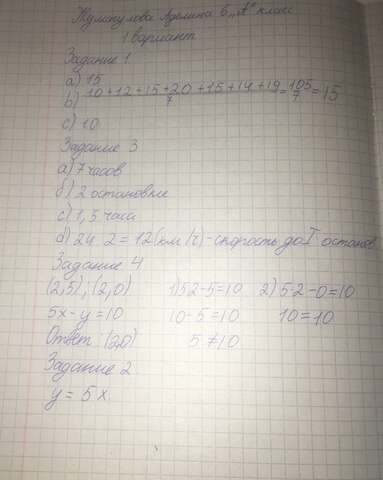 Жумагулова Аделина 6 „А" класс
1 вариант
Задание 1
а) 15
b) 10+12+15+20+15+14+19/7 = 105/7 = 15
c) 10
Задание 3
а) 7 часов
б) 2 остановке
c) 1,5 часа
d) 24:2=12(км/ч)-скорость до I останов
Задание 4
(2,5); (2,0) 1) 5·2-5=10 2) 5·2-0=10
5x-y=10 10-5=10 10=10
Ответ (2,0) 5≠10
Задание 2
y=5x